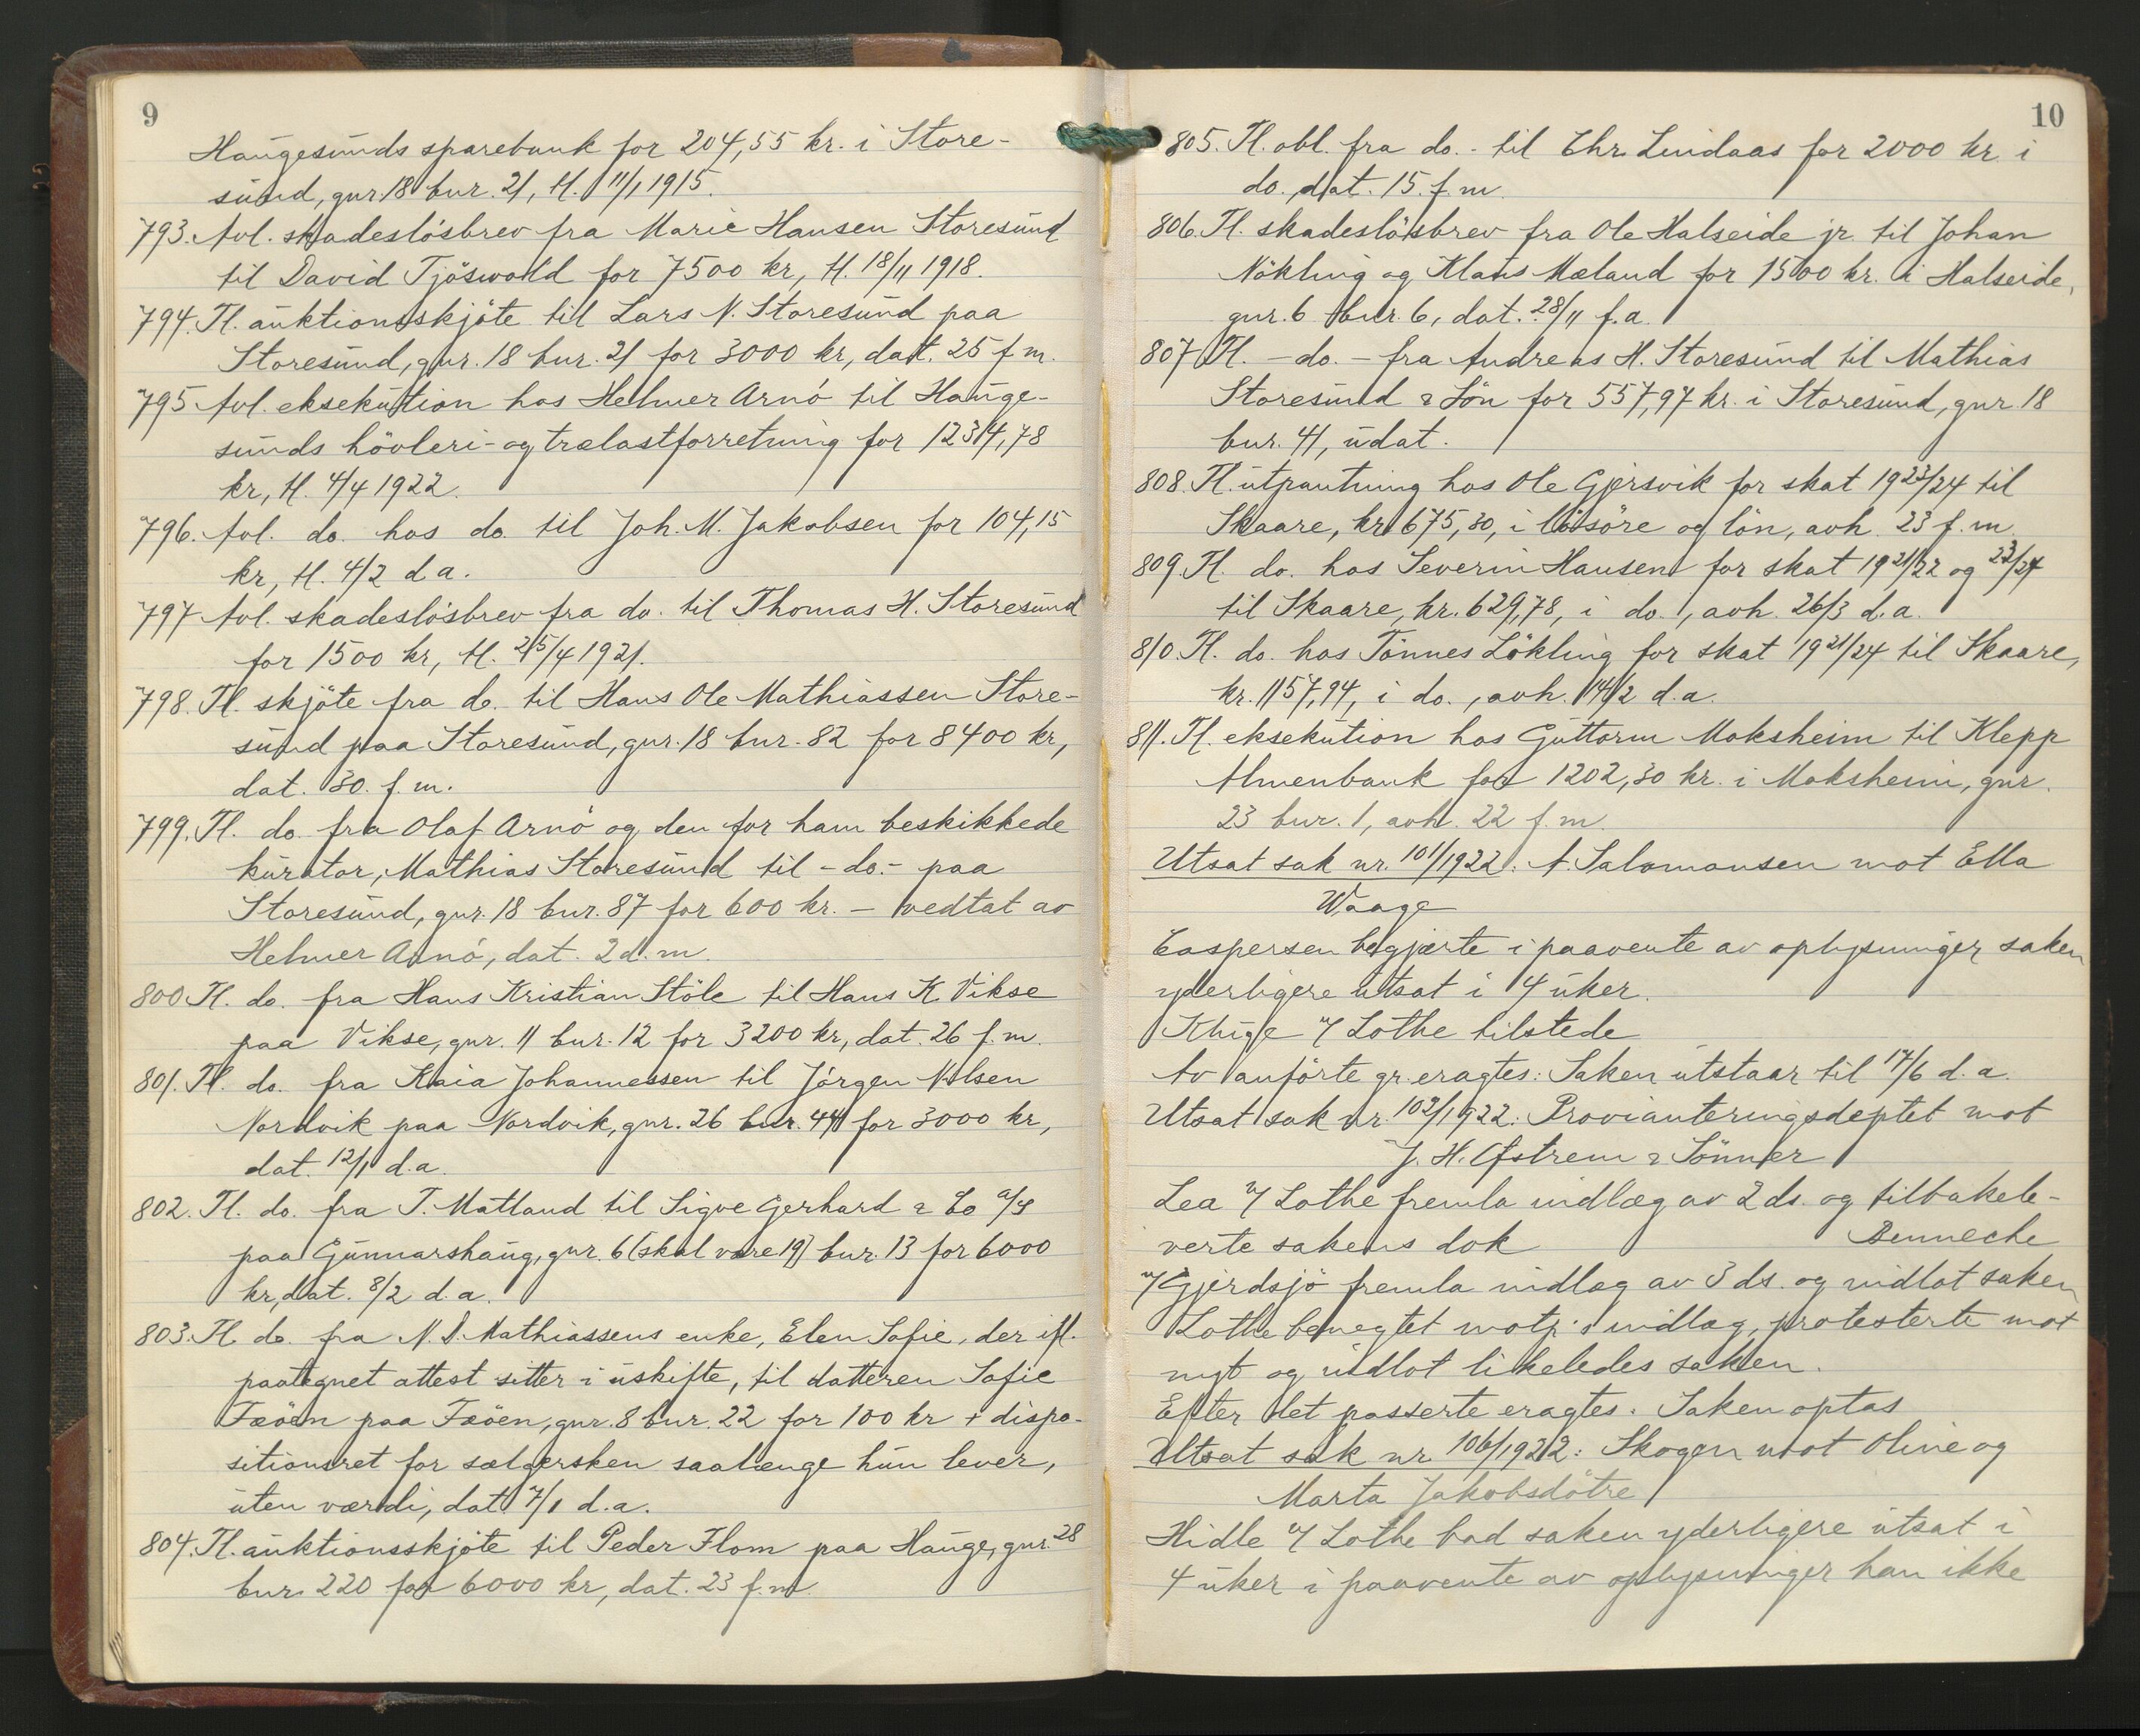 9
Haugesunds sparebank for 204,55 kr. i Store-
sund, gnr. 18 bnr. 21, tl. 11/1 1915.
793. Avl. skadesløsbrev fra Marie Hansen Storesund
til David Tjöswold for 7500 kr, tl. 18/11 1918.
794. Tl. auktionsskjöte til Lars N. Storesund paa
Storesund, gnr. 18 bnr. 21 for 3000 kr, dat. 25 f.m.
795 Avl. eksekution hos Helmer Arnö til Hauge-
sunds hövleri- og trælastforretning for 12314,78
kr, tl. 4/4 1922.
796. Avl. do. hos do. til Joh. M. Jakobsen for 104,15
kr, tl. 4/2 d.a.
797 Avl. skadeslösbrev fra do. til Thomas H. Storesund
for 1500 kr, tl. 25/4 1921.
798. Tl. skjöte fra do. til Hans Ole Mathiassen Store-
sund paa Storesund, gnr. 18 bnr. 82 for 8400 kr,
dat. 30. f.m.
799. Tl. do. fra Olaf Arnö og den for ham beskikkede
kurator, Mathias Storesund til - do. - paa
Storesund, gnr. 18 bnr. 87 for 600 kr. - vedtat av
Helmer Arnö, dat. 2 d.m.
800. Tl. do. fra Hans Kristian Stöle til Hans K. Vikse
paa Vikse, gnr. 11 bnr. 12 for 3200 kr, dat. 26 f.m.
801. Tl. do. fra Kaia Johannessen til Jörgen Nilsen
Nordvik paa Nordvik, gnr. 26 bnr. 44 for 3000 kr,
dat. 12/1 d.a.
802. Tl. do. fra T. Matland til Sigve Gerhard & Co a/s
paa Gunnarshaug, gnr. 6 (skal være 19) bnr. 13 for 6000
kr, dat. 8/2 d.a.
803. Tl. do. fra N. S. Mathiassens enke, Elen Sofie, der ifl.
paategnet attest sitter i uskifte, til datteren Sofie
Fæöen paa Fæöen, gnr. 8 bnr. 22 for 100 kr + dispo-
sitionsret for sælgersken saalænge hun lever,
uten værdi, dat. 7/1 d.a.
804. Tl. auktionsskjöte til Peder Flom paa Hauge, gnr. 28
bnr. 220 for 6000 kr, dat. 23 f.m.
10
805. Tl. obl. fra do. - til Chr. Lindaas for 2000 kr. i
do. dat. 15. f.m.
806. Tl. skadeslösbrev fra Ole Halseide jr. til Johan
Nökling og Klaus Mæland for 1500 kr. i Halseide,
gnr. 6 bnr. 6, dat. 28/11 f.a.
807 Tl. - do. - fra Andreas H. Storesund til Mathias
Storesund & Sön for 557,97 kr. i Storesund, gnr. 18
bnr. 41, udat.
808. Tl. utpantning hos Ole Gjersvik for skat 1923/24 til
Skaare, kr. 675,30, i lösöre og lön, avh. 23 f.m.
809. Tl. do. hos Severin Hansen for skat 1921/22 og 23/24
til Skaare, kr. 629,78, i do., avh. 26/3 d.a.
810. Tl. do. hos Tönnes Lökling for skat 1921/24 til Skaare,
kr. 1157,94, i do., avh. 14/2 d.a.
811. Tl. eksekution hos Guttorm Moksheim til Klepp
Almenbank for 1202,30 kr. i Moksheim, gnr.
23 bnr. 1, avh. 22 f.m.
Utsat sak nr. 101/1922: A. Salomonsen mot Ella
Waage
Caspersen begjærte i paavente av oplysninger saken
yderligere utsat i 4 uker.
Kluge v/ Lothe tilstede
Av anförte gr. eragtes: Saken utstaar til 17/6 d.a.
Utsat sak nr. 102/1922: Provianteringsdeptet mot
J. H. Östrem & Sönner
Lea v/ Lothe fremla indlæg av 2 ds. og tilbakele-
verte sakens dok
Benneche
v/ Gjerdsjö fremla indlæg av 3 ds. og indlot saken
Lothe benegtet motp's indlæg, protesterte mot
nyt og indlot likeledes saken.
Efter det passerte eragtes: Saken optas
Utsat sak nr. 106/1922: Skogen mot Oline og
Marta Jakobsdötre
Hidle v/ Lothe bad saken yderligere utsat i
4 uker i paavente av oplysninger han ikke